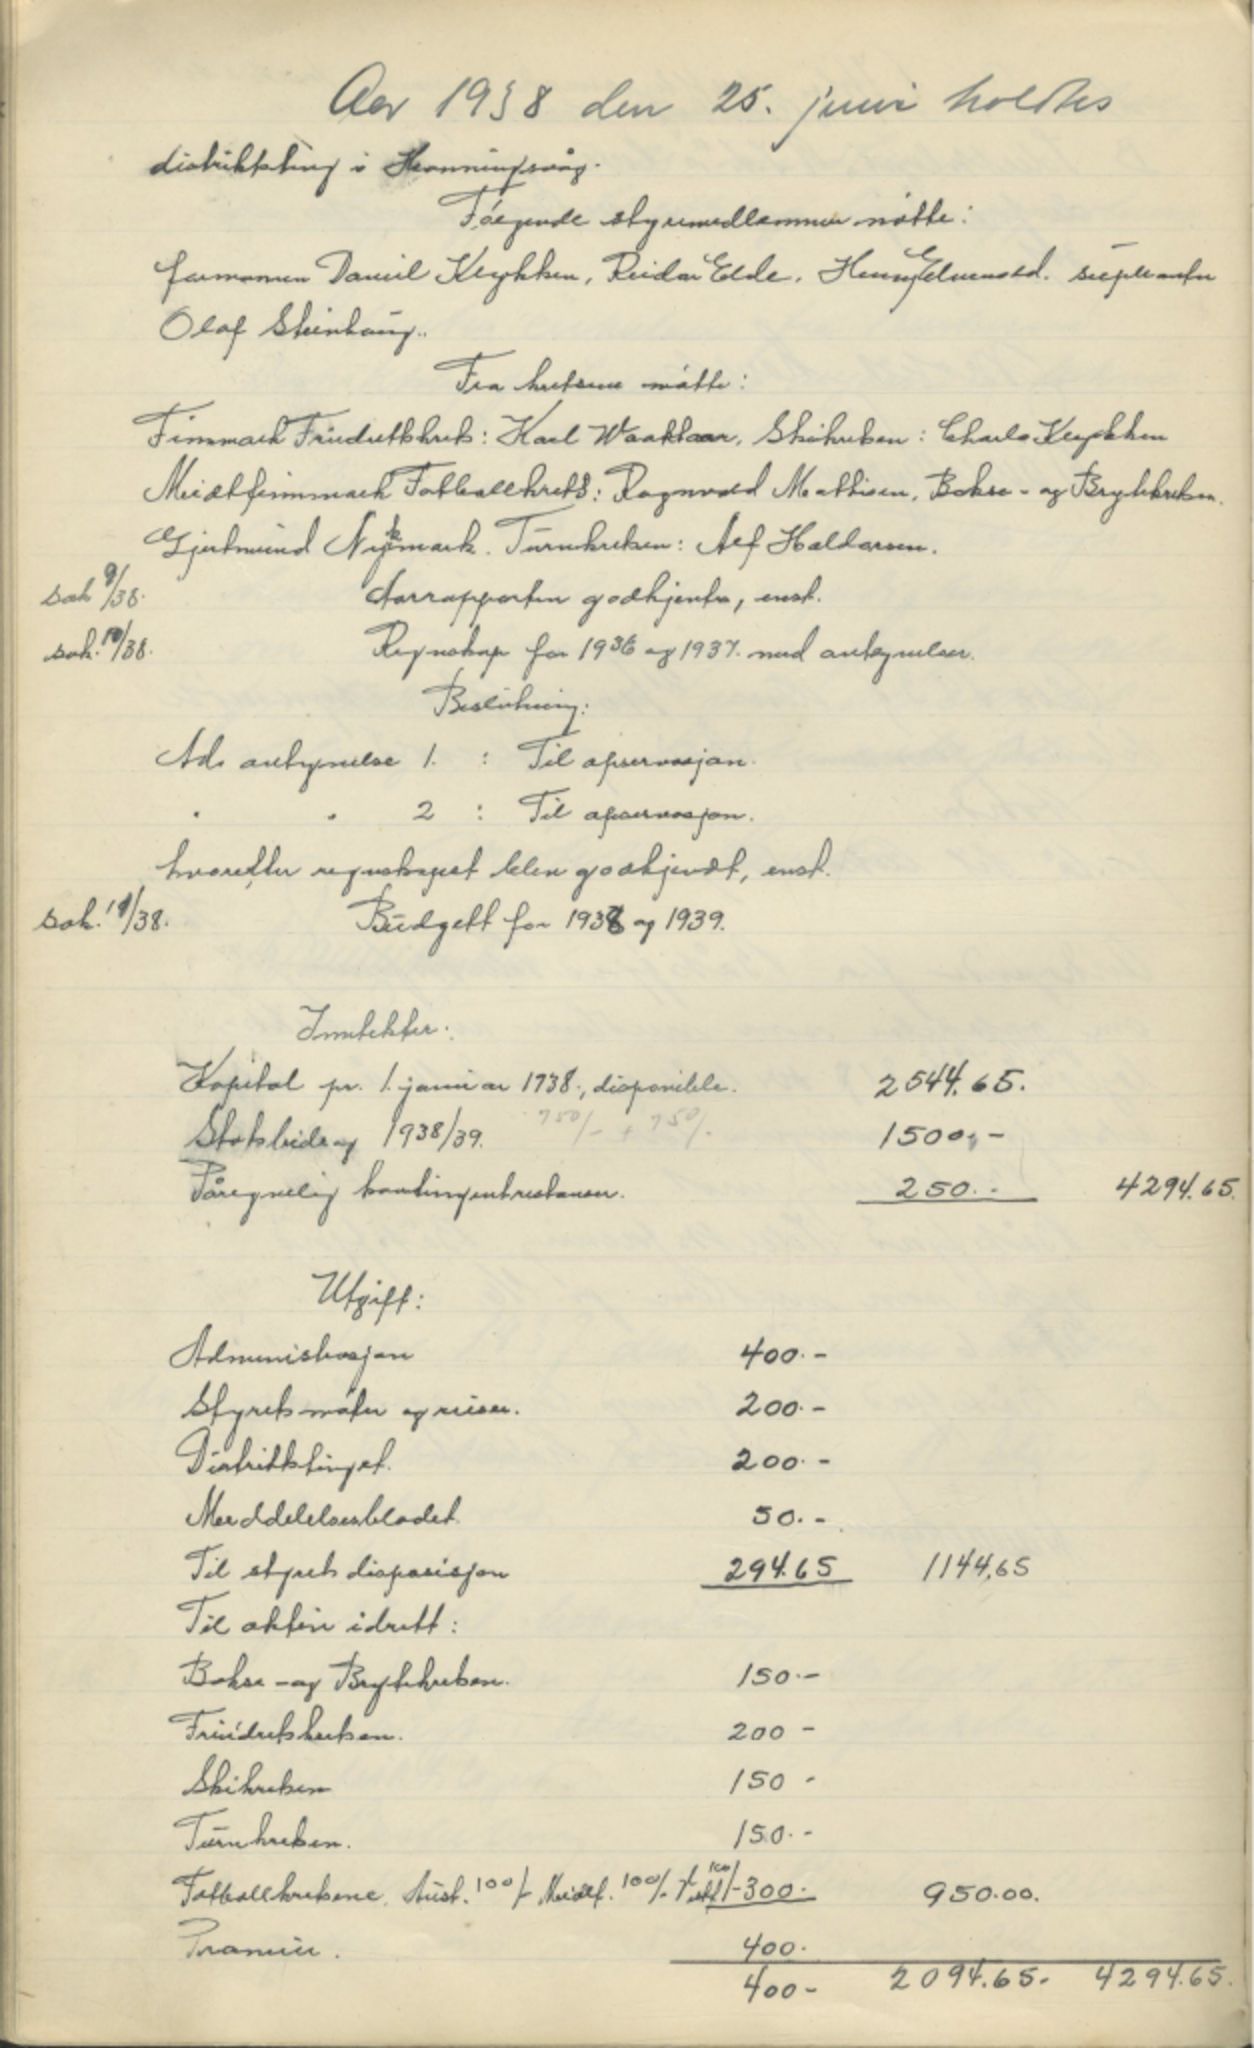 Aar 1938 den 25. juni holdtes
distriktsting i Honningsvåg.
Følgende styremedlemmer møtte:
formannen Daniel Klykken, Reidar Elde, Henry suppleanten
Olaf Steinhaug.
Fra kretsene møtte:
Finnmark Friidrettskrets: Karl Waaktaar, Skikretsen: Charles Klykken
Meidtfinnmark Fotballkrets: Ragnvald Mathisen, Bokse- og Brytekretsen.
Gjertmund Nymark. Turnkretsen: Alf Haldorsen.
sak 9/38. Aarrapporten godkjentes, enst.
sak. 10/38. Regnskap for 1936 og 1937. med antegnelser.
Beslutning:
Ad. antegnelse 1. : Til observasjon.
" " 2 : Til observasjon.
hvoretter regnskapet blev godkjendt, enst.
sak. 11/38. Budgett for 1938 og 1939.
Inntekter:
Kapital pr. 1. januar 1938, disponible. 2544.65.
Statsbidrag 1938/39. 750/- + 750/- 1500,-
Påregnelig kontingentrestanser. 250.- 4294.65.
Utgift:
Administrasjon 400.-
Styrets møter og reiser. 200.-
Distriktstinget. 200.-
Meddelelsesbladet. 50.-
Til styrets disposisjon 294.65 1144,65
Til aktiv idrett:
Bokse-og Brytekretsen. 150.-
Friidrettskretsen. 200 -
Skikretsen 150 -
Turnkretsen. 150.-
Fotballkretsene. Aust. 100/- Meidtf. 100/- Vestf 100/- 300.- 950.00.
Premier. 400.
400- 2094.65- 4294.65.